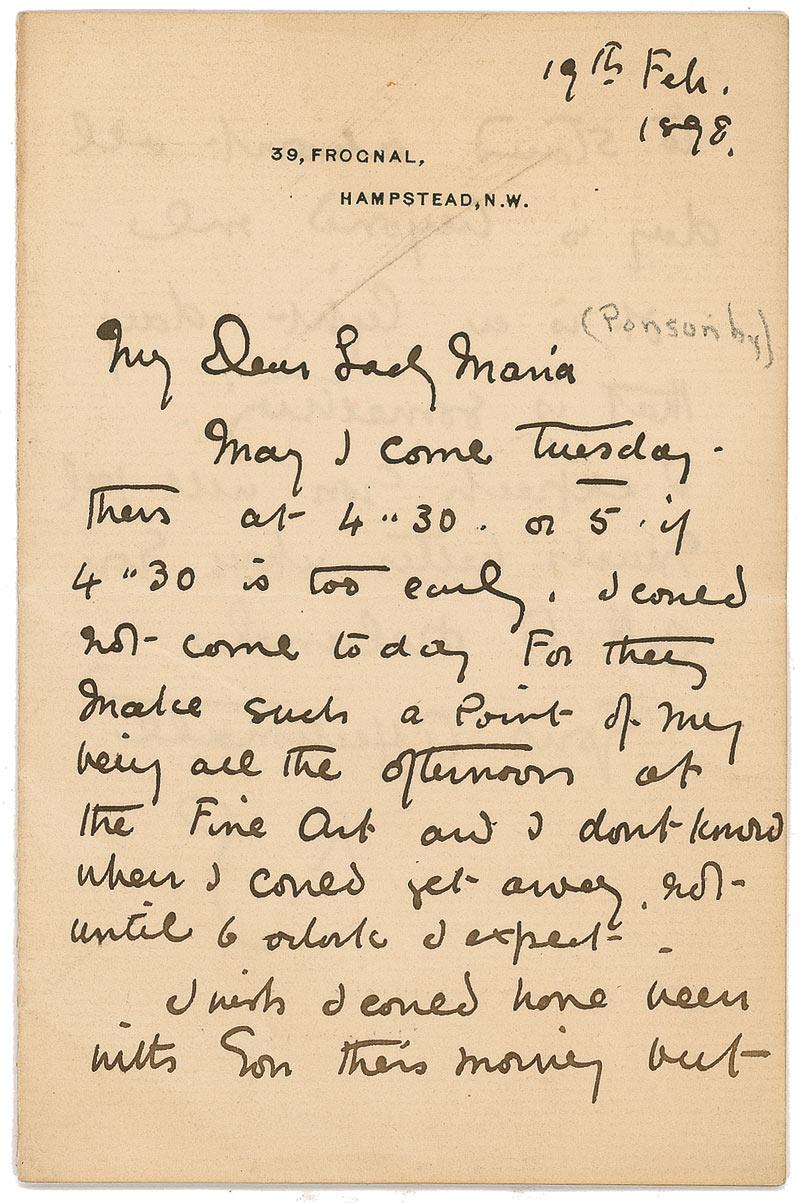 19th Feb.
1898.
39, FROGNAL,
HAMPSTEAD, N.W.
(Ponsonby)
My Dear Lady Maria
May I come Tuesday -
then at 4"30. or 5. if
4"30 is too early. I could
not come to day For they
Make such a Point of my
being all the afternoon at
the Fine Art and I dont know
when I could get away, not
until 6 oclock I expect -
I wish I could have been
with You this morning but